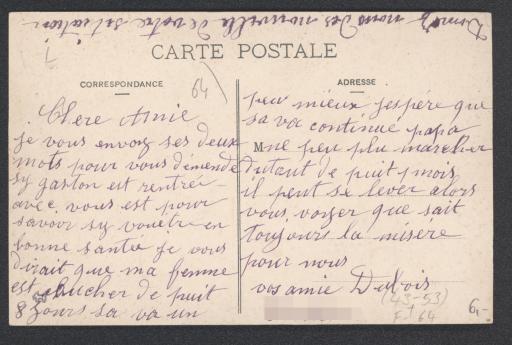 Donnez nous des nouvelle de votre situation
CARTE POSTALE
CORRESPONDANCE
ADRESSE
64
Chere Amie
je vous envoy ses deux
mots pour vous demende
sy gaston est rentré
avec vous est pour
savoir sy vouetre en
bonne santée je vous
dirait que ma femme
est coucher de puit
8 jours sa va un
peu mieux jespére que
sa va continué papa
M ne peu plu marcher
dutout de puit 1 mois
il peut se lever alors
vous voyer que sait
toujours la misere
pour nous
vos amie Dubois
(43-53)
F 64
6,-